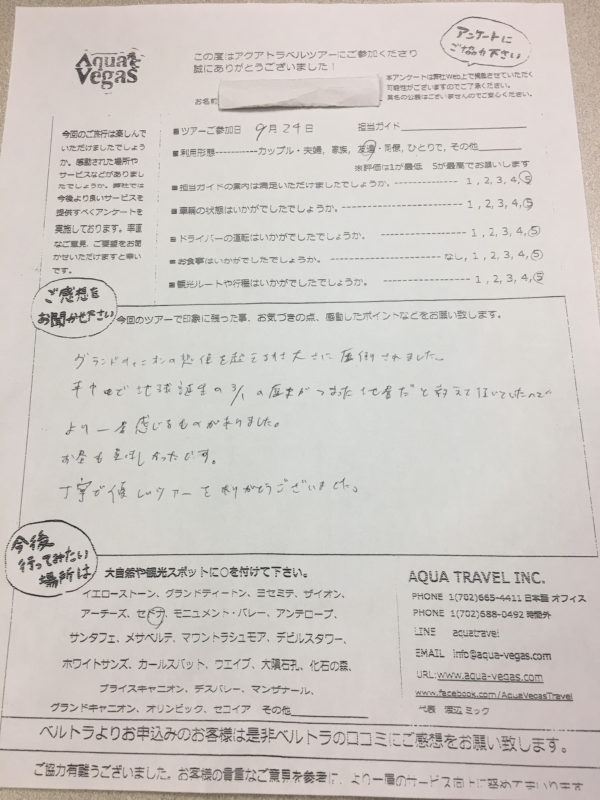 Aqua Vegas
この度はアクアトラベルツアーにご参加くださり
誠にありがとうございました！
アンケートに
ご協力下さい
本アンケートは弊社Web上で掲載させていただく
可能性がございますのでご了承ください。
実名の公表はございませんのでご安心ください。
お名前
今回のご旅行は楽しんで
いただけましたでしょう
か。感動された場所や
サービスなどがありまし
たでしょうか。弊社では
今後より良いサービスを
提供すべくアンケートを
実施しております。率直
なご意見、ご要望をお聞
かせいただけますと幸い
です。
■ツアーご参加日 9月24日 担当ガイド
■利用形態------------カップル・夫婦, 家族, 友達・同僚, ひとりで, その他
※評価は1が最低 5が最高でお願いします
■担当ガイドの案内は満足いただけましたでしょうか。------------ 1, 2, 3, 4, 5
■車輛の状態はいかがでしたでしょうか。------------ 1, 2, 3, 4, 5
■ドライバーの運転はいかがでしたでしょうか。 ------------ 1, 2, 3, 4, 5
■お食事はいかがでしたでしょうか。------------ なし, 1, 2, 3, 4, 5
■観光ルートや行程はいかがでしたでしょうか。------------ 1, 2, 3, 4, 5
ご感想を
お聞かせ下さい
今回のツアーで印象に残った事、お気づきの点、感動したポイントなどをお願い致します。
グランドキャニオンの想像を超える大きさに圧倒されました。
車中で地球誕生の1/3の歴史がつまった地層だと教えて頂いていたので
より一層感じるものがありました。
お昼も美味しかったです。
丁寧で優しいツアーをありがとうございました。
今後
行ってみたい
場所は
大自然や観光スポットに○を付けて下さい。
イエローストーン、グランドティートン、ヨセミテ、ザイオン、
アーチーズ、セドナ、モニュメント・バレー、アンテロープ、
サンタフェ、メサベルデ、マウントラシュモア、デビルスタワー、
ホワイトサンズ、カールスバット、ウエイブ、大隕石孔、化石の森、
ブライスキャニオン、デスバレー、マンザナール、
グランドキャニオン、オリンピック、セコイア その他
AQUA TRAVEL INC.
PHONE 1(702)665-4411 日本語 オフィス
PHONE 1(702)688-0492 時間外
LINE aquatravel
EMAIL info@aqua-vegas.com
URL:www.aqua-vegas.com
www.facebook.com/AquaVegasTravel
代表 渡辺 ミック
ベルトラよりお申込みのお客様は是非ベルトラの口コミにご感想をお願い致します。
ご協力有難うございました。お客様の貴重なご意見を参考に、より一層のサービス向上に努めてまいります